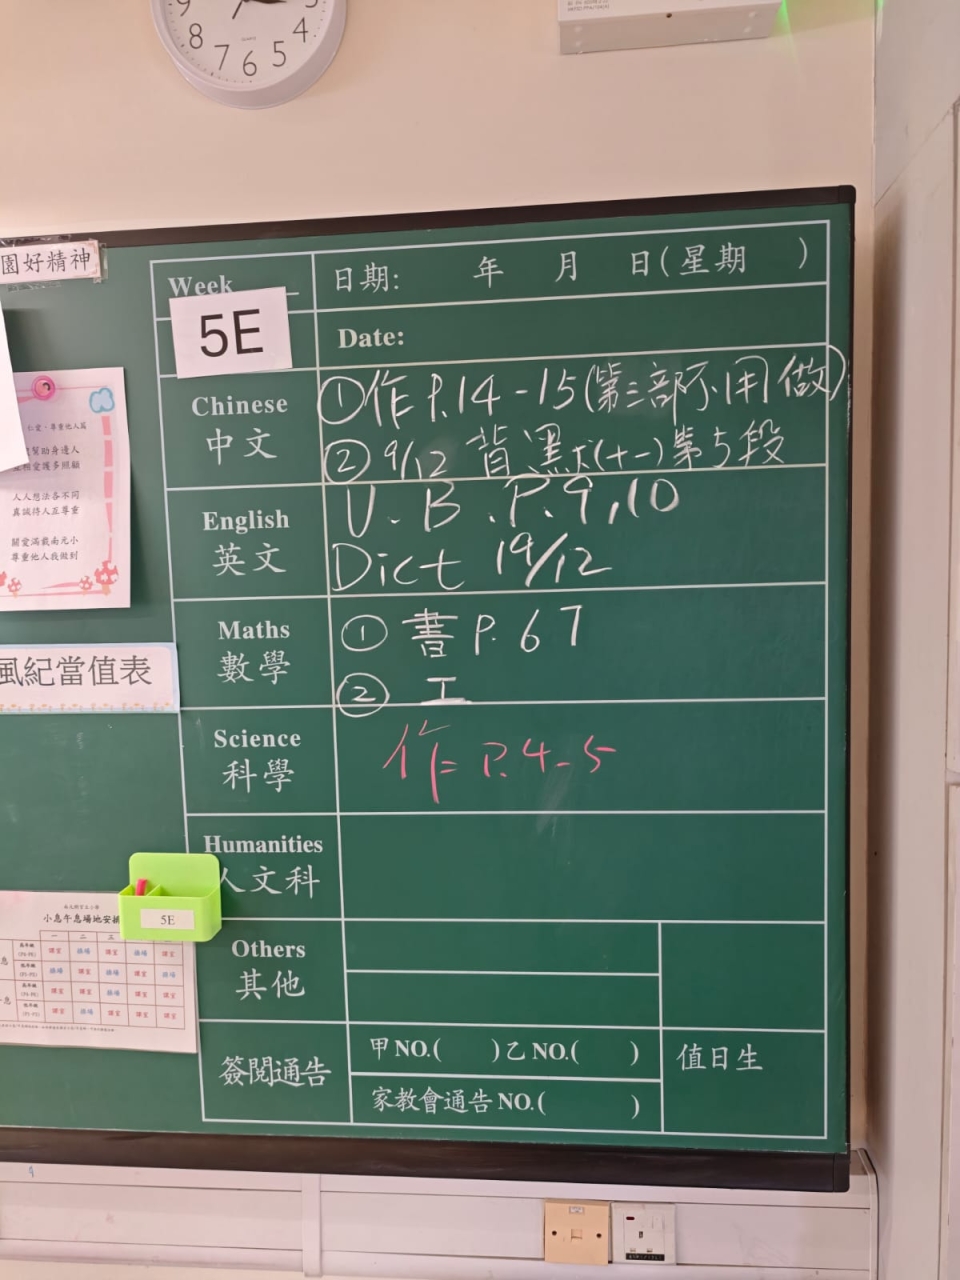 9
8
7
6
5
4
園好精神
Week
5E
日期: 年 月 日(星期 )
Date:
Chinese
中文
①作 P.14-15(第三部不用做)
② 9/12 背默(十一)第5段
English
英文
U.B.P.9,10
Dict 19/12
Maths
數學
① 書 P.67
② 工
Science
科學
作 P.4-5
Humanities
人文科
Others
其他
簽閱通告
甲 NO.( )乙 NO.( )
家教會通告 NO.( )
值日生
幫助身邊人
相愛護多照顧
人人想法各不同
真誠待人互尊重
關愛滿載南元小
尊重他人我做到
風紀當值表
5E
小息午息場地安排
一 二 三